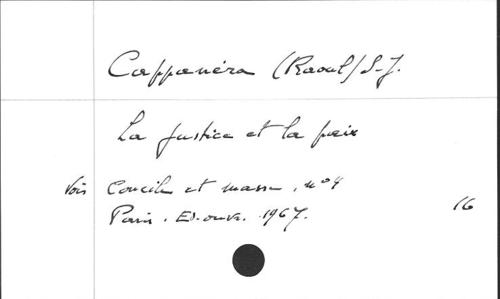 Cappanera (Raoul) S.J.
La Justice et la paix
Vois Concile et masse, n° 4
Paris. Ed. ouvr. 1967.
16